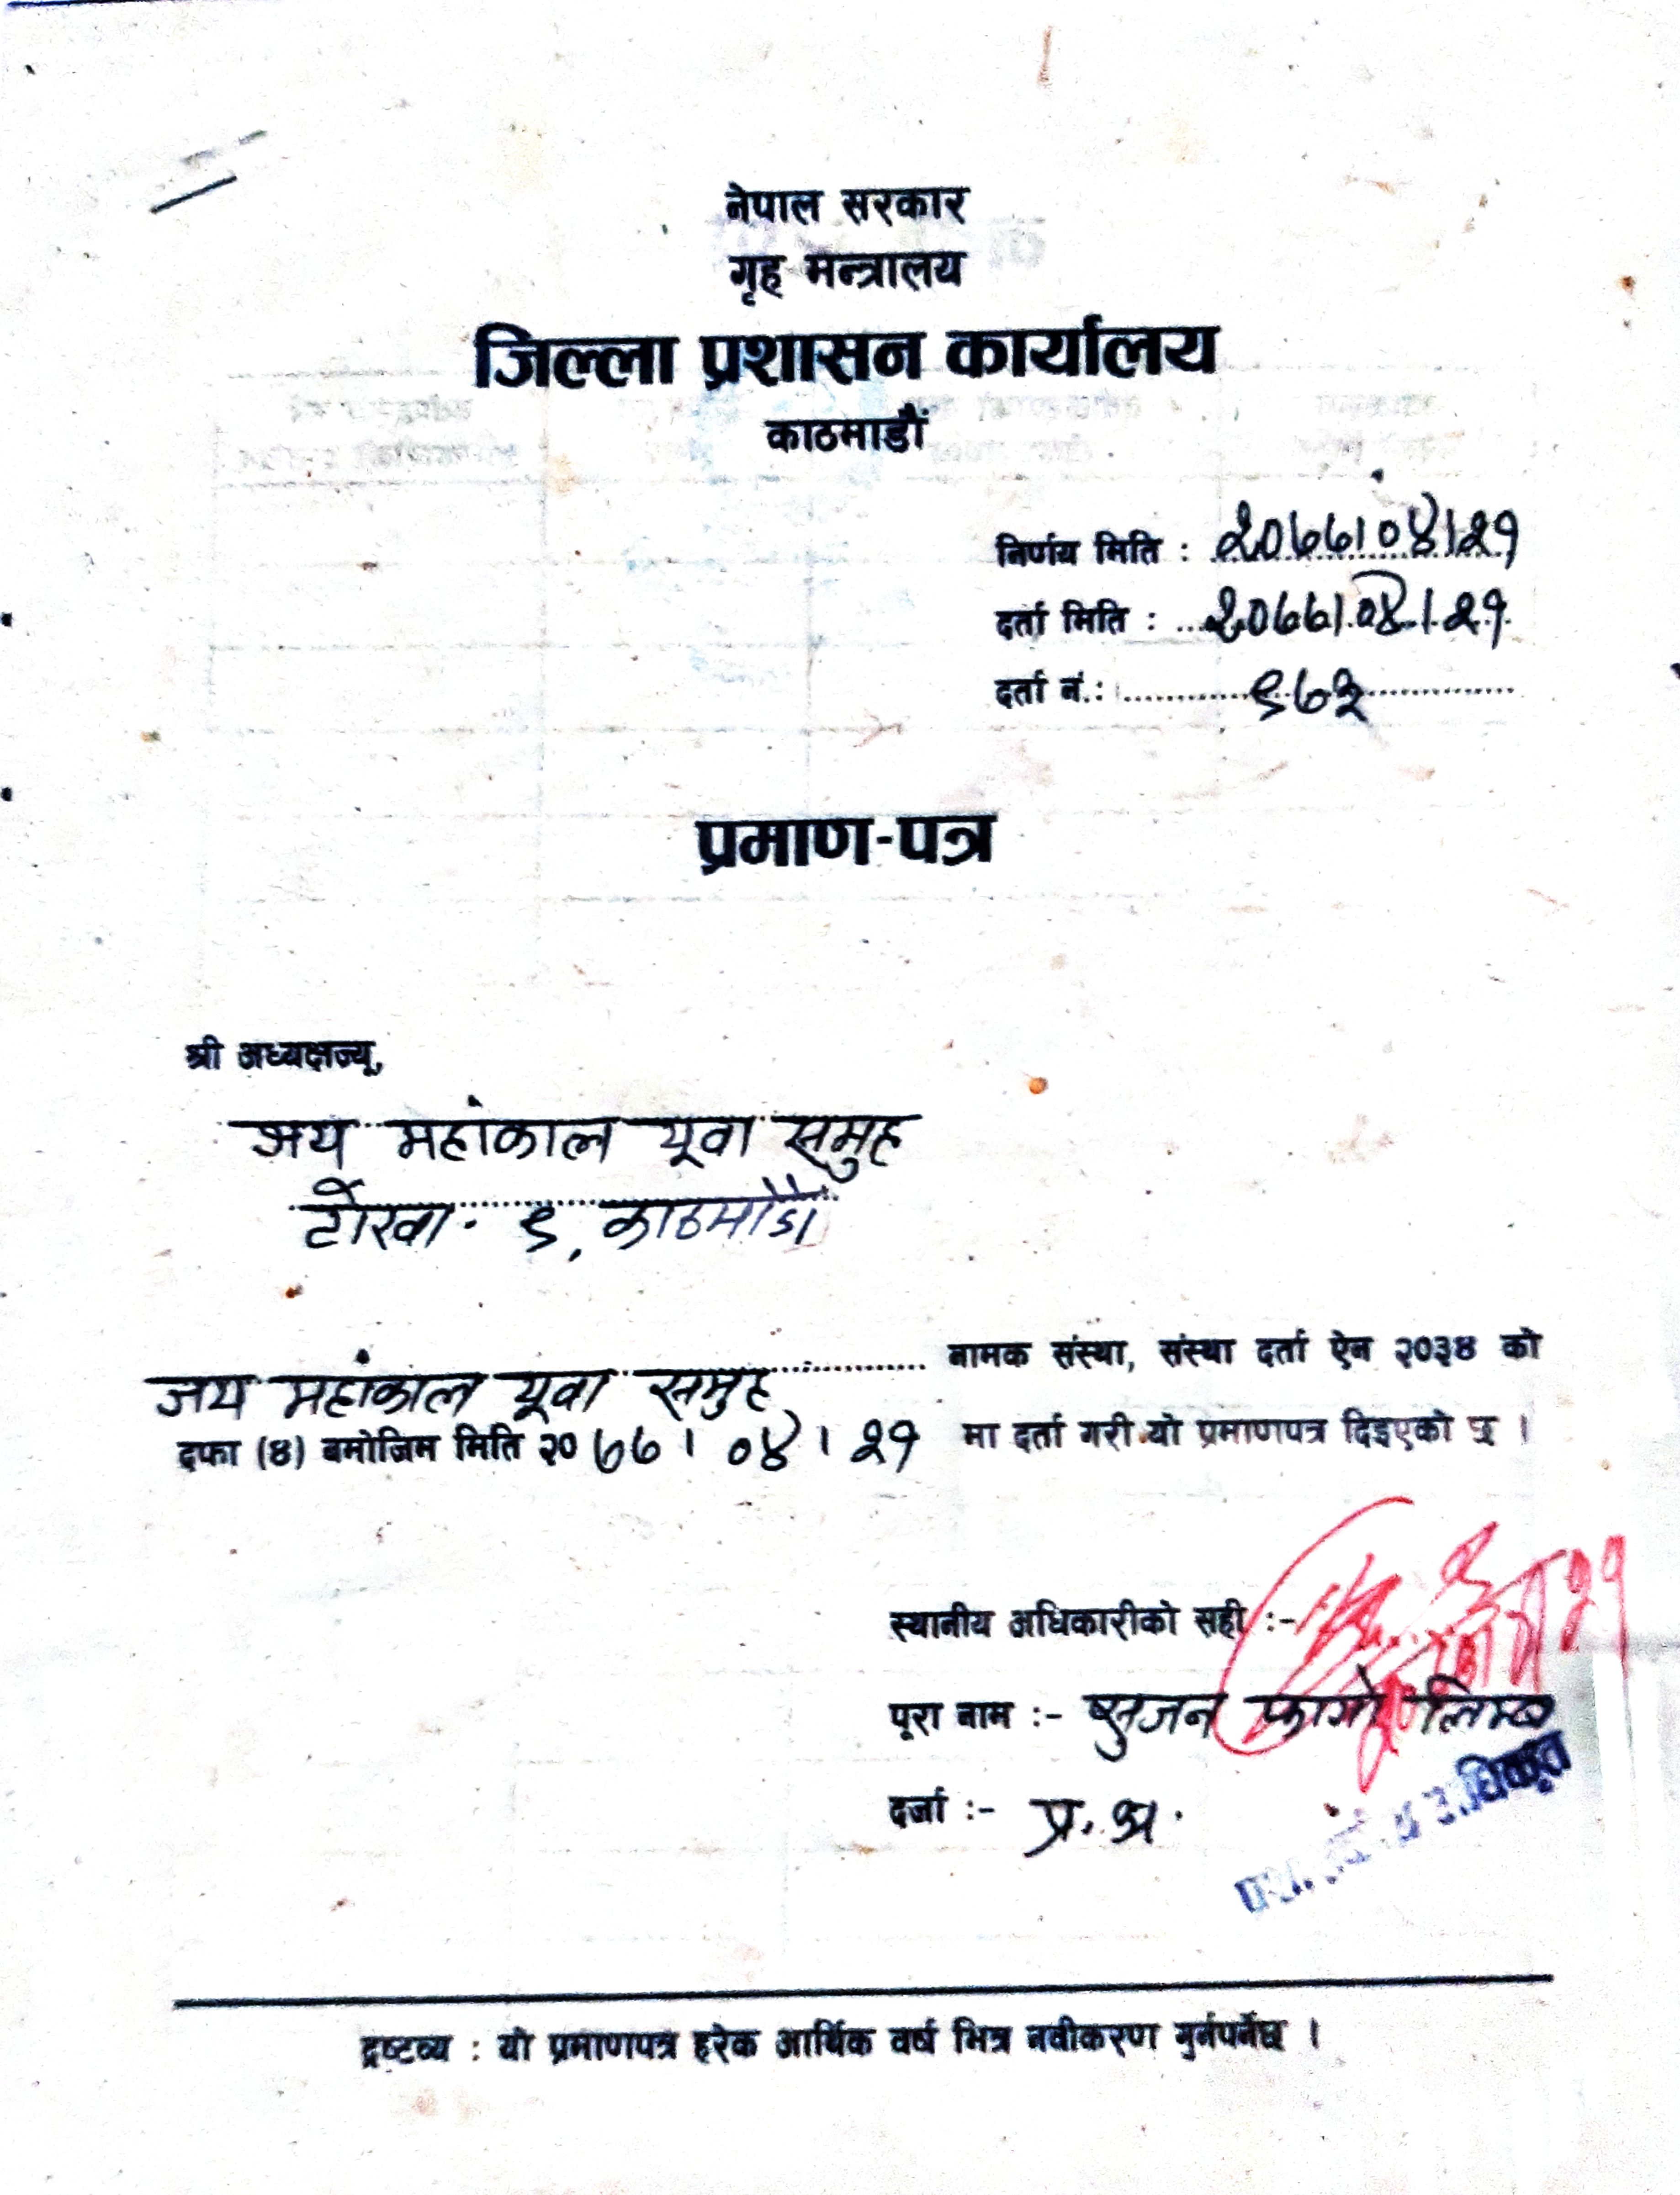 नेपाल सरकार
गृह मन्त्रालय
जिल्ला प्रशासन कार्यालय
काठमाडौं
निर्णय मिति : २०७७।०४।२१
दर्ता मिति : २०७७।०४।२१
दर्ता नं.: ९७३
प्रमाण-पत्र
श्री अध्यक्षज्यू,
जय महांकाल यूवा समुह
टोखा - ९, काठमाडौं
जय महांकाल यूवा समुह नामक संस्था, संस्था दर्ता ऐन २०३४ को
दफा (४) बमोजिम मिति २०७७।०४।२१ मा दर्ता गरी यो प्रमाणपत्र दिइएको छ ।
स्थानीय अधिकारीको सही :-
पूरा नाम :- सुजन फागो लिम्बु
दर्जा :- प्र. अ.
द्रष्टव्य : यो प्रमाणपत्र हरेक आर्थिक वर्ष भित्र नवीकरण गुर्नपर्नेछ ।